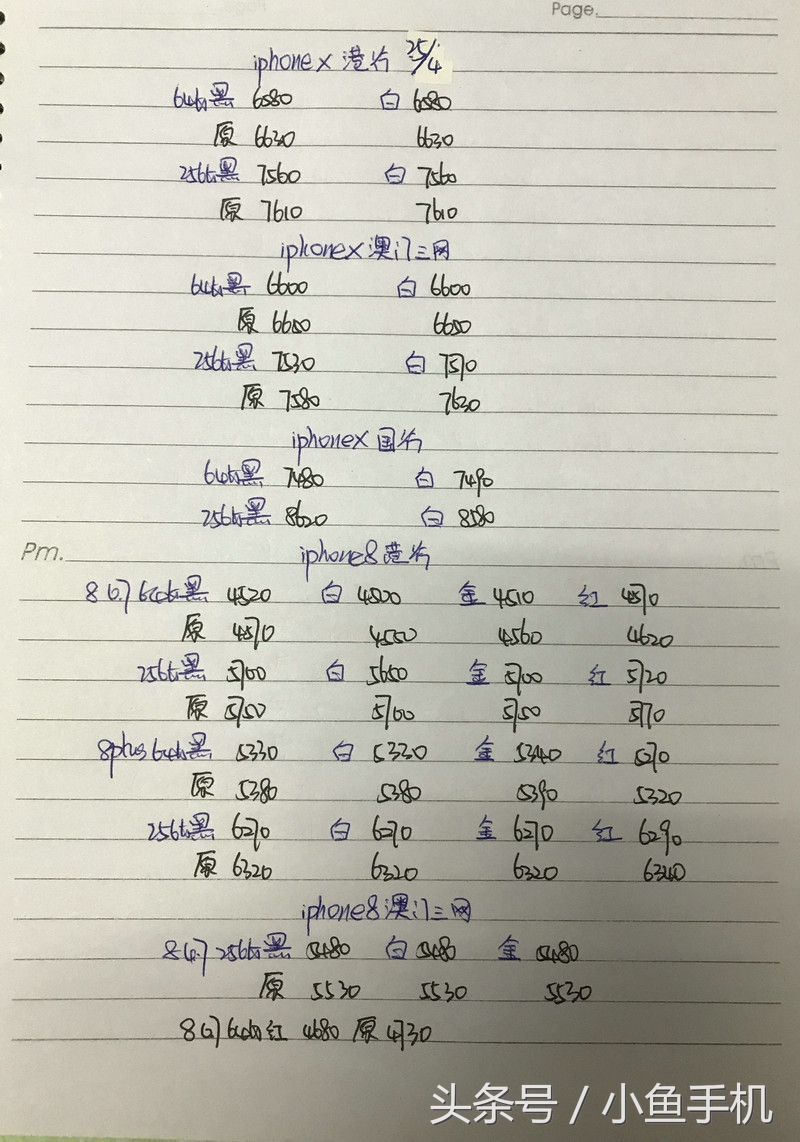 Page.
iphonex 港行 25/4
64g黑 6580 白 6580
原 6630 6630
256g黑 7560 白 7560
原 7610 7610
iphonex澳门三网
64g黑 6600 白 6600
原 6650 6650
256g黑 7530 白 7570
原 7580 7630
iphonex 国行
64g黑 7480 白 7490
256g黑 8620 白 8580
Pm.
iphone8港行
8(4.7) 64g黑 4520 白 4500 金 4510 红 4570
原 4570 4550 4560 4620
256g黑 5700 白 5650 金 5700 红 5720
原 5750 5700 5750 5770
8plus 64g黑 5330 白 5330 金 5340 红 5270
原 5380 5380 5390 5320
256g黑 6270 白 6270 金 6270 红 6290
原 6320 6320 6320 6340
iphone8澳门三网
8(4.7) 256g黑 5480 白 5480 金 5480
原 5530 5530 5530
8(4.7) 64g红 4680 原 4730
头条号 / 小鱼手机